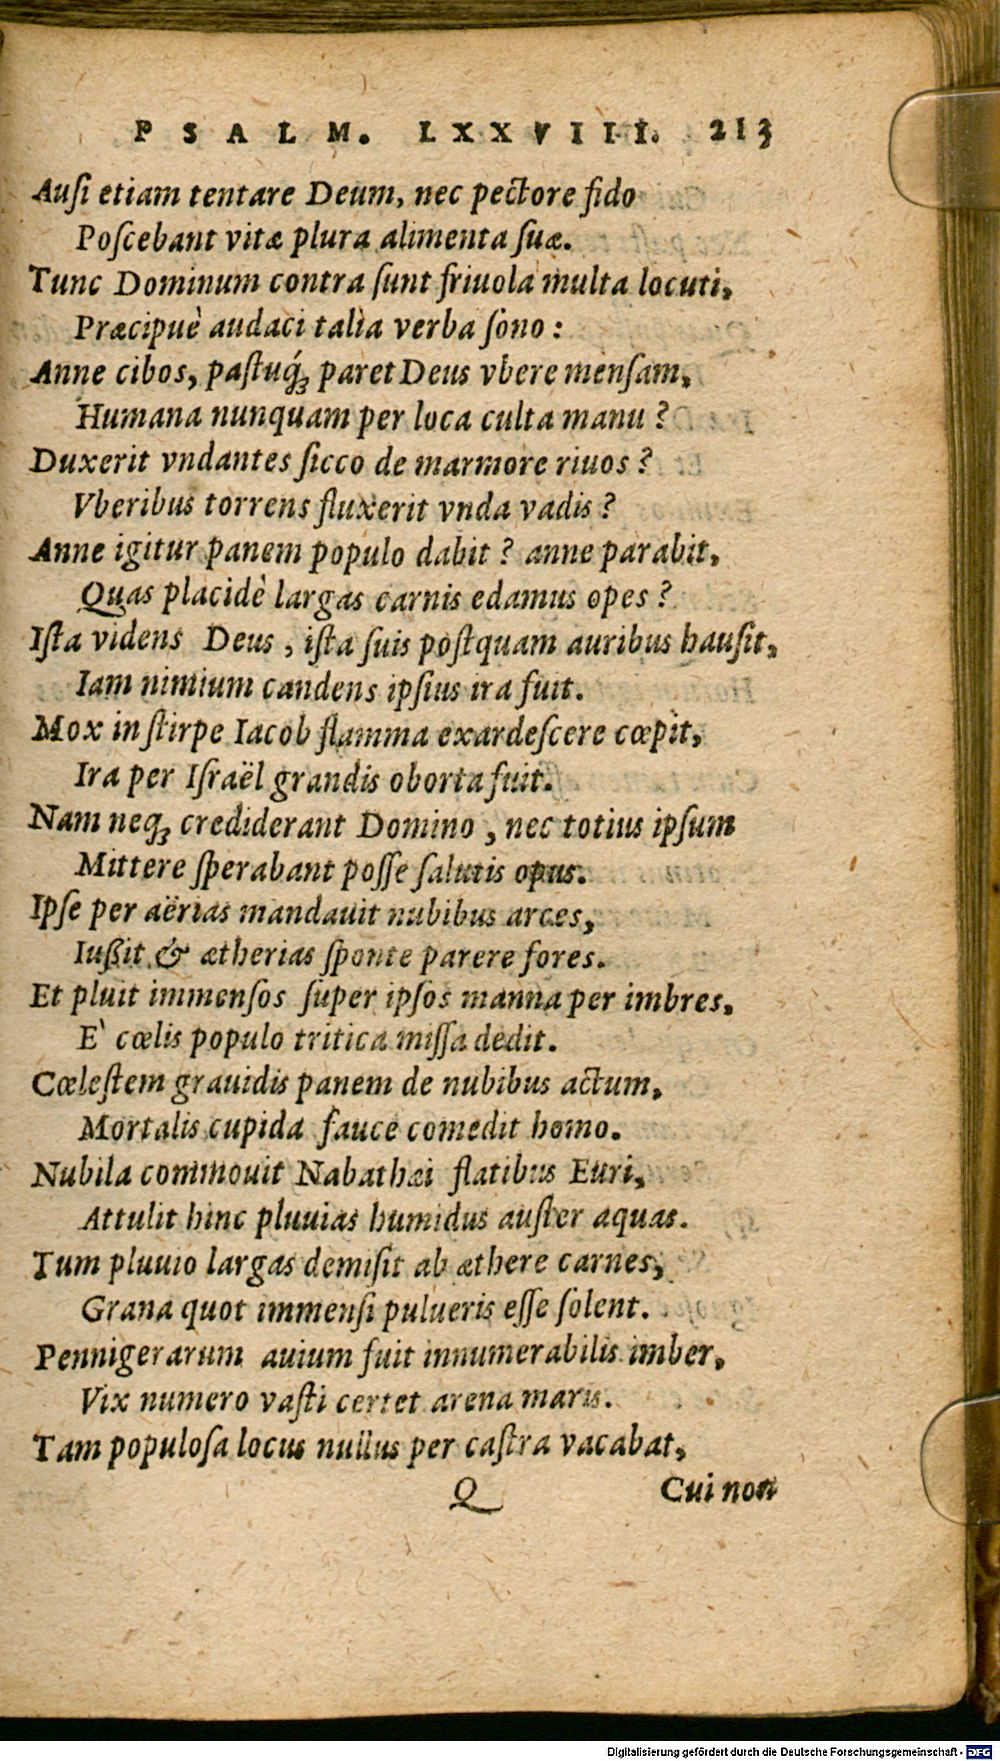 PSALM. LXXVIII. 213
Auſi etiam tentare Deum, nec pectore fido
Poſcebant vitæ plura alimenta ſuæ.
Tunc Dominum contra ſunt friuola multa locuti,
Præcipuè audaci talia verba ſono:
Anne cibos, paſtuq́ꝫ paret Deus vbere menſam,
Humana nunquam per loca culta manu?
Duxerit vndantes ſicco de marmore riuos?
Vberibus torrens fluxerit vnda vadis?
Anne igitur panem populo dabit? anne parabit,
Quas placidè largas carnis edamus opes?
Iſta videns Deus, iſta ſuis poſtquam auribus hauſit,
Iam nimium candens ipſius ira fuit.
Mox in ſtirpe Iacob flamma exardeſcere cœpit,
Ira per Iſraël grandis oborta fuit.
Nam neqꝫ crediderant Domino, nec totius ipſum
Mittere ſperabant poſſe ſalutis opus.
Ipſe per aërias mandauit nubibus arces,
Iußit & ætherias ſponte parere fores.
Et pluit immenſos ſuper ipſos manna per imbres,
E` cœlis populo tritica miſſa dedit.
Cœleſtem grauidis panem de nubibus actum,
Mortalis cupida fauce comedit homo.
Nubila commouit Nabathæi flatibus Euri,
Attulit hinc pluuias humidus auſter aquas.
Tum pluuio largas demiſit ab æthere carnes,
Grana quot immenſi pulueris eſſe ſolent.
Pennigerarum auium fuit innumerabilis imber,
Vix numero vaſti certet arena maris.
Tam populoſa locus nullus per caſtra vacabat,
Q Cui non
Digitalisierung gefördert durch die Deutsche Forschungsgemeinschaft - DFG